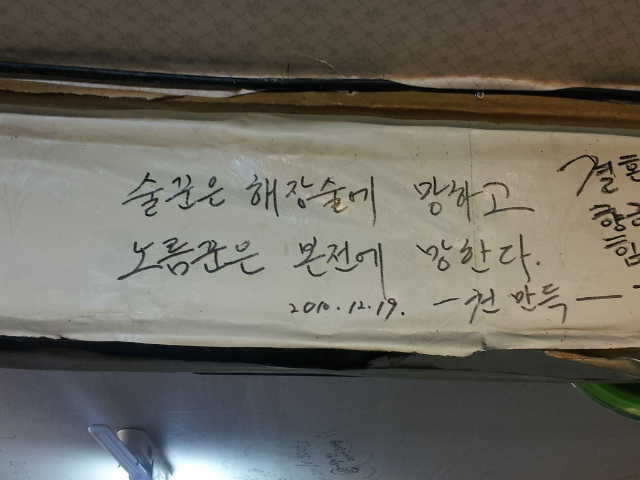 술꾼은 해장술에 망하고
노름꾼은 본전에 망한다.
2010.12.19. -천만득-
결혼